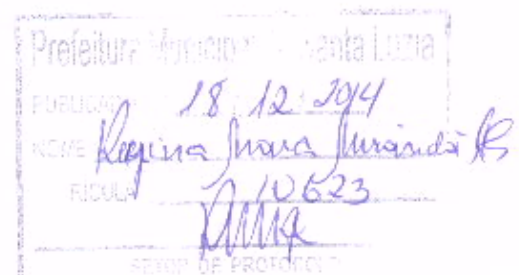 Prefeitura Municipal de Santa Luzia
18 12 2014
NOME Regina Mara Miranda
10623
SETOR DE PROTOCOLO